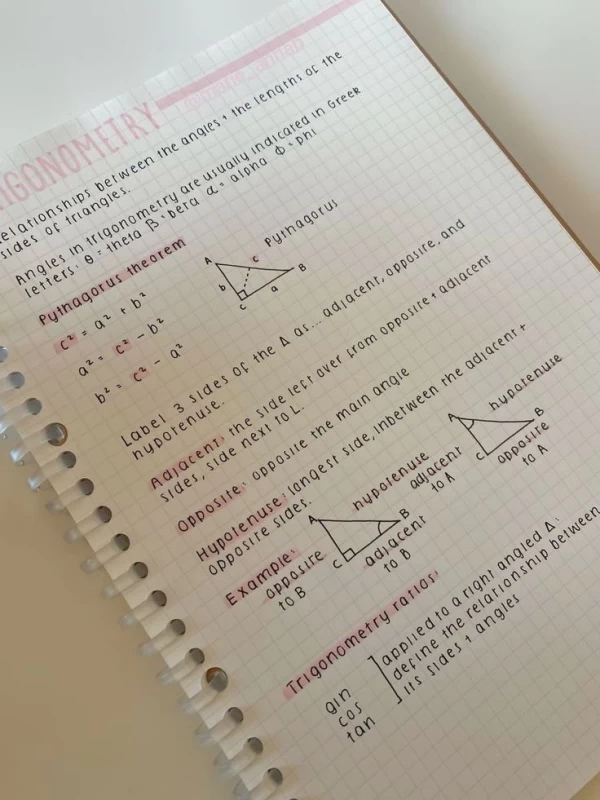 RIGONOMETRY
relationships between the angles + the lengths of the
sides of triangles.
Angles in trigonometry are usually indicated in Greek
letters. θ = theta β = bera α = alpha Φ = phi
Pythagorus theorem
c² = a² + b²
a² = c² - b²
b² = c² - a²
Pythagorus
A
c
B
b
a
c
Label 3 sides of the Δ as... adjacent, opposite, and
hypotenuse.
Adjacent: the side left over from opposite + adjacent
sides, side next to L.
Opposite: opposite the main angle
Hypotenuse: longest side, inbetween the adjacent +
opposite sides.
Example:
hypotenuse
A
B
C
opposite
to B
adjacent
to B
hypotenuse
A
B
C
adjacent
to A
opposite
to A
Trigonometry ratios:
gin
cos
tan
applied to a right angled Δ:
define the relationship between
its sides + angles